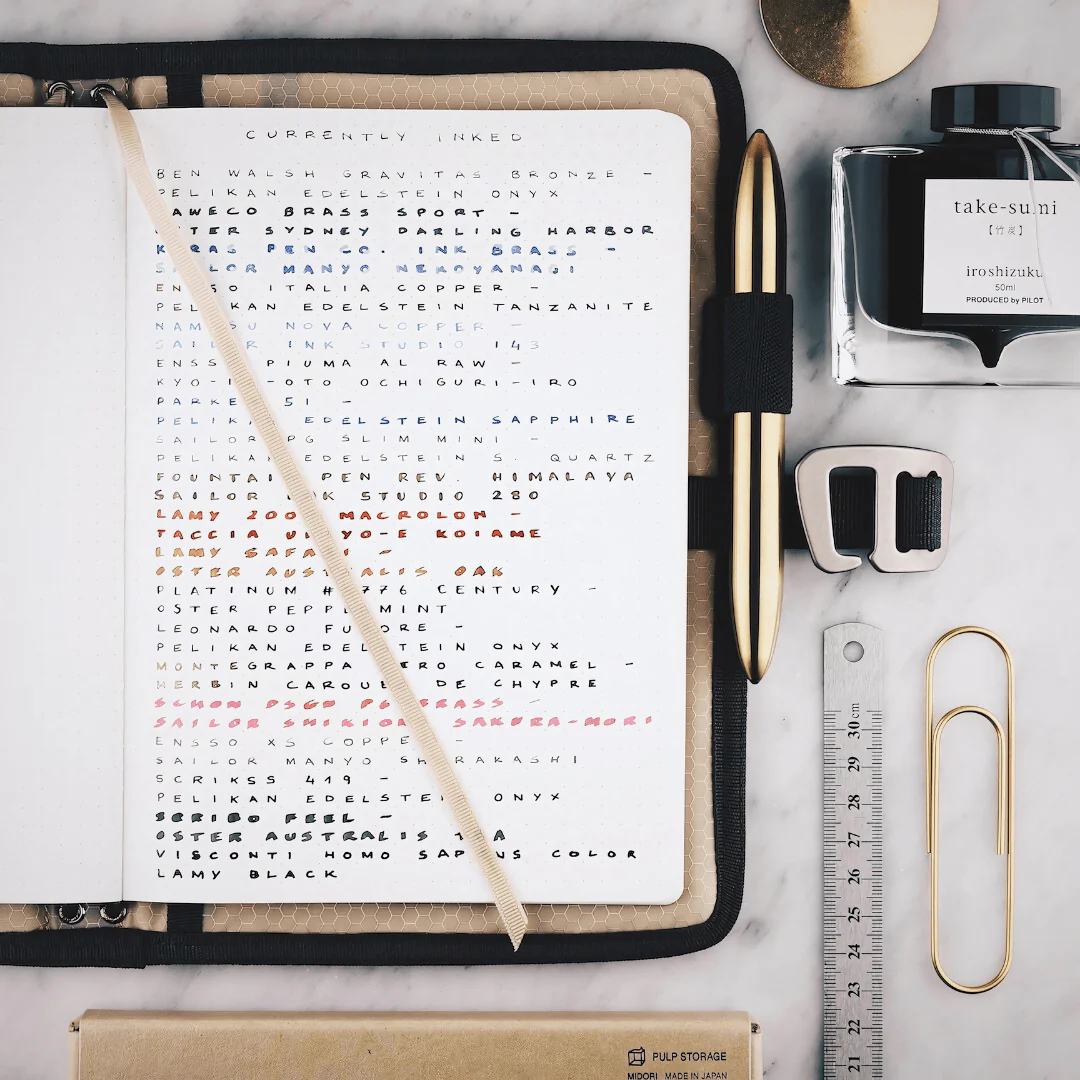 CURRENTLY INKED
BEN WALSH GRAVITAS BRONZE -
PELIKAN EDELSTEIN ONYX
KAWECO BRASS SPORT -
OSTER SYDNEY DARLING HARBOR
KARAS PEN CO. INK BRASS -
SAILOR MANYO NEKOYANAGI
ENSSO ITALIA COPPER -
PELIKAN EDELSTEIN TANZANITE
NAMISU NOVA COPPER -
SAILOR INK STUDIO 143
ENSSO PIUMA AL RAW -
KYO-IRO OCHIGURI-IRO
PARKER 51 -
PELIKAN EDELSTEIN SAPPHIRE
SAILOR PG SLIM MINI -
PELIKAN EDELSTEIN S. QUARTZ
FOUNTAIN PEN REV. HIMALAYA
SAILOR INK STUDIO 280
LAMY 2000 MACROLON -
TACCIA UKIYO-E KOIAME
LAMY SAFARI -
OSTER AUSTRALIS OAK
PLATINUM #3776 CENTURY -
OSTER PEPPERMINT
LEONARDO FURORE -
PELIKAN EDELSTEIN ONYX
MONTEGRAPPA ZERO CARAMEL -
HERBIN CAROUBE DE CHYPRE
SCHON DSGN P6 BRASS -
SAILOR SHIKIORI SAKURA-MORI
ENSSO XS COPPER -
SAILOR MANYO SHIRAKASHI
SCRIKSS 419 -
PELIKAN EDELSTEIN ONYX
SCRIBO FEEL -
OSTER AUSTRALIS
VISCONTI HOMO SAPIENS COLOR
LAMY BLACK
take-sumi
【竹炭】
iroshizuku
50ml
PRODUCED by PILOT
30 cm
29
28
27
26
25
24
23
22
21
PULP STORAGE
MIDORI MADE IN JAPAN